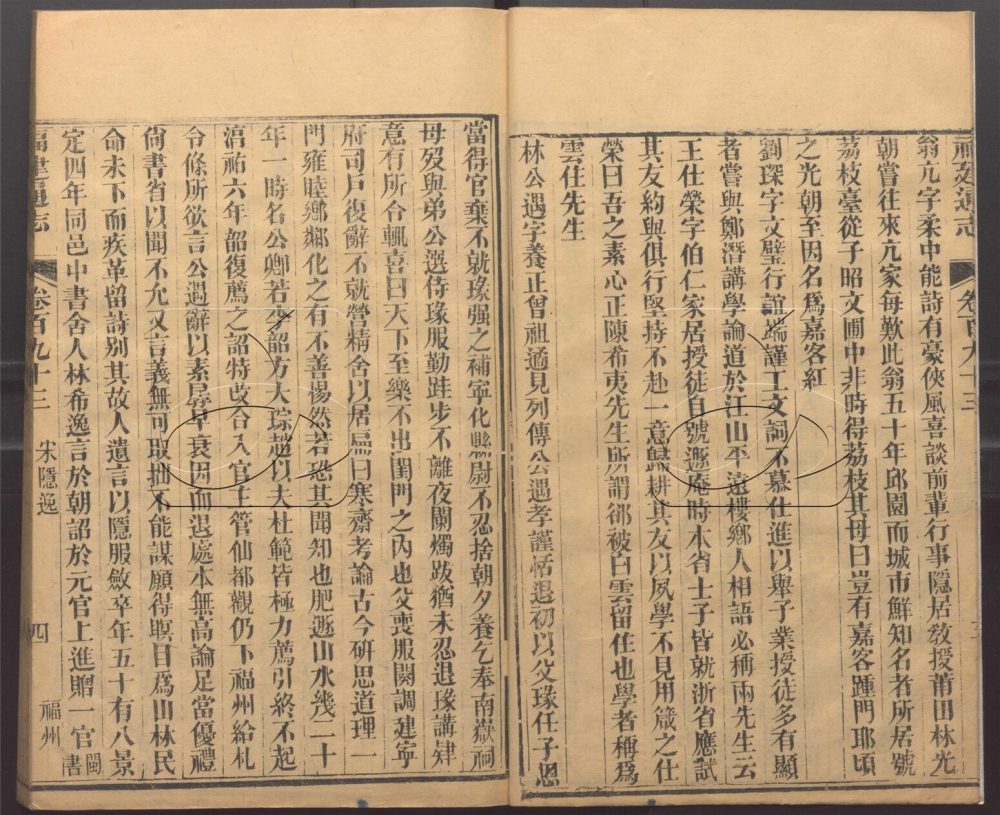 福建通志 卷百九十三
翁亢字柔中能詩有豪俠風喜談前輩行事隱居敎授莆田林光
朝嘗往來亢家每歎此翁五十年邱園而城市鮮知名者所居號
荔枝臺從子昭文圃中非時得荔枝其母曰豈有嘉客踵門耶頃
之光朝至因名爲嘉客紅
劉琛字文璧行誼端謹工文詞不慕仕進以舉子業授徒多有顯
者嘗與鄭潛講學論道於江山平遠樓鄉人相語必稱兩先生云
王仕榮字伯仁家居授徒自號遯庵時本省士子皆就浙省應試
其友約與俱行堅持不赴一意歸耕其友以夙學不見用箴之仕
榮曰吾之素心正陳希夷先生所謂郤被白雲留住也學者稱爲
雲住先生
林公遇字養正曾祖遹見列傳公遇孝謹恬退初以父瑑任子恩
當得官棄不就瑑强之補寧化縣尉不忍捨朝夕養乞奉南嶽祠
母歿與弟公選侍瑑服勤跬步不離夜闌燭跋猶未忍退瑑講肄
意有所合輒喜曰天下至樂不出閨門之內也父喪服闋調建寧
府司戶復辭不就營精舍以居扁曰寒齋考論古今硏思道理一
門雍睦鄉鄰化之有不善惕然若恐其聞知也肥遯山水幾二十
年一時名公卿若 韶方大琮趙以夫杜範皆極力薦引終不起
淯祐六年韶復薦之詔特改合入官主管仙都觀仍下福州給札
令條所欲言公遇辭以素孱早衰因而退處本無高論足當優禮
尙書省以聞不允又言義無可取拙不能謀願得瞑目爲山林民
命未下而疾革留詩别其故人遺言以隱服斂卒年五十有八景
定四年同邑中書舍人林希逸言於朝詔於元官上進贈一官閩書
福建通志 卷百九十三 宋隱逸 四 福州